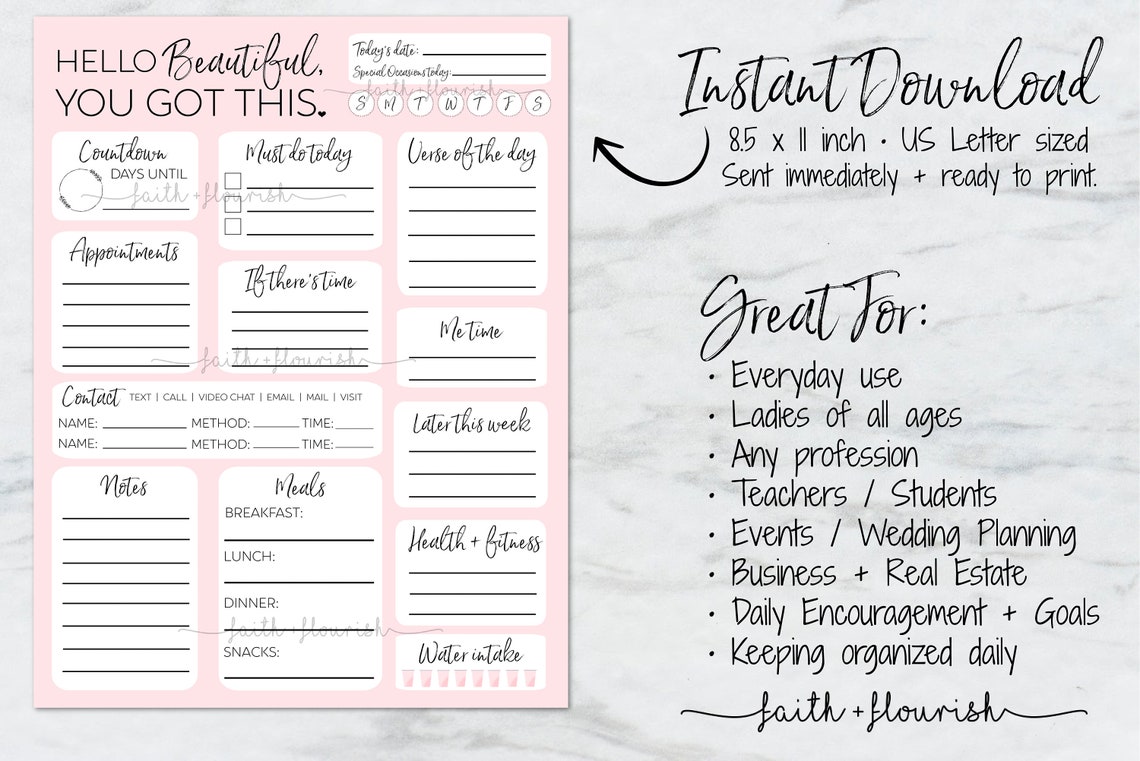 HELLO Beautiful,
YOU GOT THIS.
Today's date:
Special Occasions today:
faith + flourish
S M T W T F S
Countdown
DAYS UNTIL
faith + flourish
Must do today
Verse of the day
Appointments
If there's time
faith + flourish
Me time
Contact TEXT | CALL | VIDEO CHAT | EMAIL | MAIL | VISIT
NAME: METHOD: TIME:
NAME: METHOD: TIME:
Later this week
Notes
Meals
BREAKFAST:
LUNCH:
DINNER:
faith + flourish
SNACKS:
Health + fitness
Water intake
Instant Download
8.5 x 11 inch • US Letter sized
Sent immediately + ready to print.
Great For:
• Everyday use
• Ladies of all ages
• Any profession
• Teachers / Students
• Events / Wedding Planning
• Business + Real Estate
• Daily Encouragement + Goals
• Keeping organized daily
faith + flourish